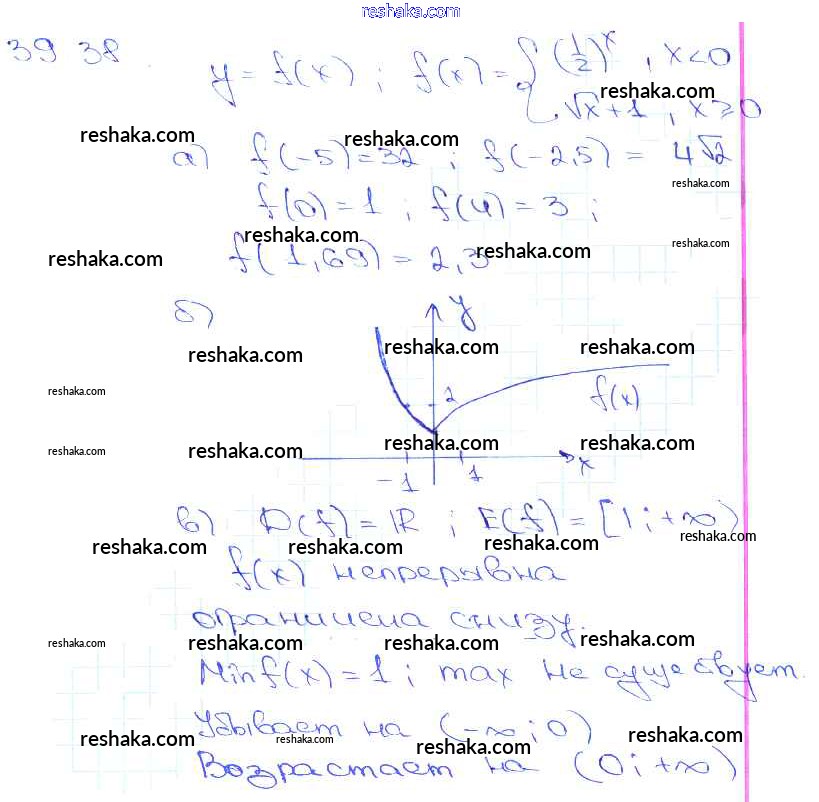 reshaka.com
39 38. y = f(x) ; f(x) = { (1/2)^x , x<0
√x + 1 , x ≥ 0
reshaka.com
reshaka.com reshaka.com
а) f(-5) = 32 ; f(-2,5) = 4√2
reshaka.com
f(0) = 1 ; f(4) = 3 ;
reshaka.com reshaka.com
f(1,69) = 2,3
reshaka.com reshaka.com
б) y
reshaka.com reshaka.com reshaka.com
reshaka.com
2 f(x)
reshaka.com reshaka.com reshaka.com reshaka.com
-1 1 x
в) D(f) = R ; E(f) = [1 ; +∞)
reshaka.com reshaka.com reshaka.com reshaka.com
f(x) непрерывна
ограничена снизу.
reshaka.com reshaka.com reshaka.com reshaka.com
Min f(x) = 1 ; max не существует.
reshaka.com reshaka.com reshaka.com reshaka.com
Убывает на (-∞ ; 0)
reshaka.com reshaka.com reshaka.com reshaka.com
Возрастает на (0 ; +∞)